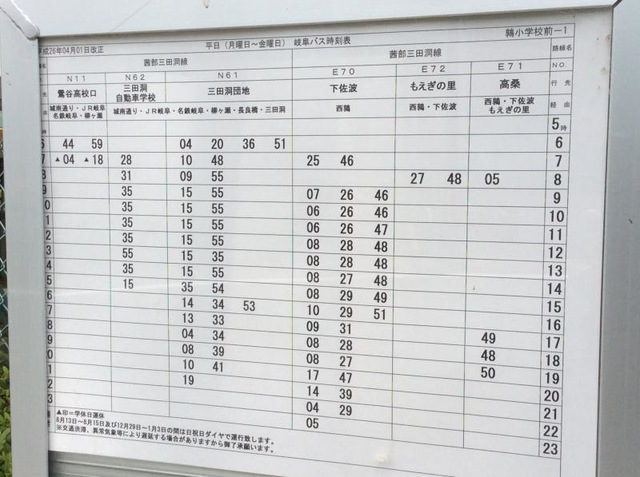 鶉小学校前-1
成26年04月01日改正 平日(月曜日～金曜日) 岐阜バス時刻表
茜部三田洞線 茜部三田洞線 路線名
N11 N62 N61 E70 E72 E71 NO.
鶯谷高校口 三田洞自動車学校 三田洞団地 下佐波 もえぎの里 高桑 行先
城南通り・JR岐阜・名鉄岐阜・柳ヶ瀬 城南通り・JR岐阜・名鉄岐阜・柳ヶ瀬・長良橋・三田洞 西鶉 西鶉・下佐波 西鶉・下佐波もえぎの里 経由
5時
6 44 59 04 20 36 51 6
7 ▲04 ▲18 28 10 48 25 46 7
8 31 09 55 27 48 05 8
9 35 15 55 07 26 46 9
0 35 15 55 06 26 46 10
1 35 15 55 06 26 47 11
2 35 15 55 08 28 48 12
3 55 15 55 08 28 48 13
4 35 15 55 08 27 48 14
5 15 35 54 08 29 49 15
6 14 34 53 10 29 51 16
7 13 33 09 31 49 17
8 04 34 08 28 48 18
9 08 39 08 27 50 19
0 10 41 17 47 20
1 19 14 39 21
2 04 29 22
3 05 23
▲印＝学休日運休
8月13日～8月15日及び12月29日～1月3日の間は日祝日ダイヤで運行致します。
※交通渋滞、異常気象等により遅延する場合がありますから御了承願います。